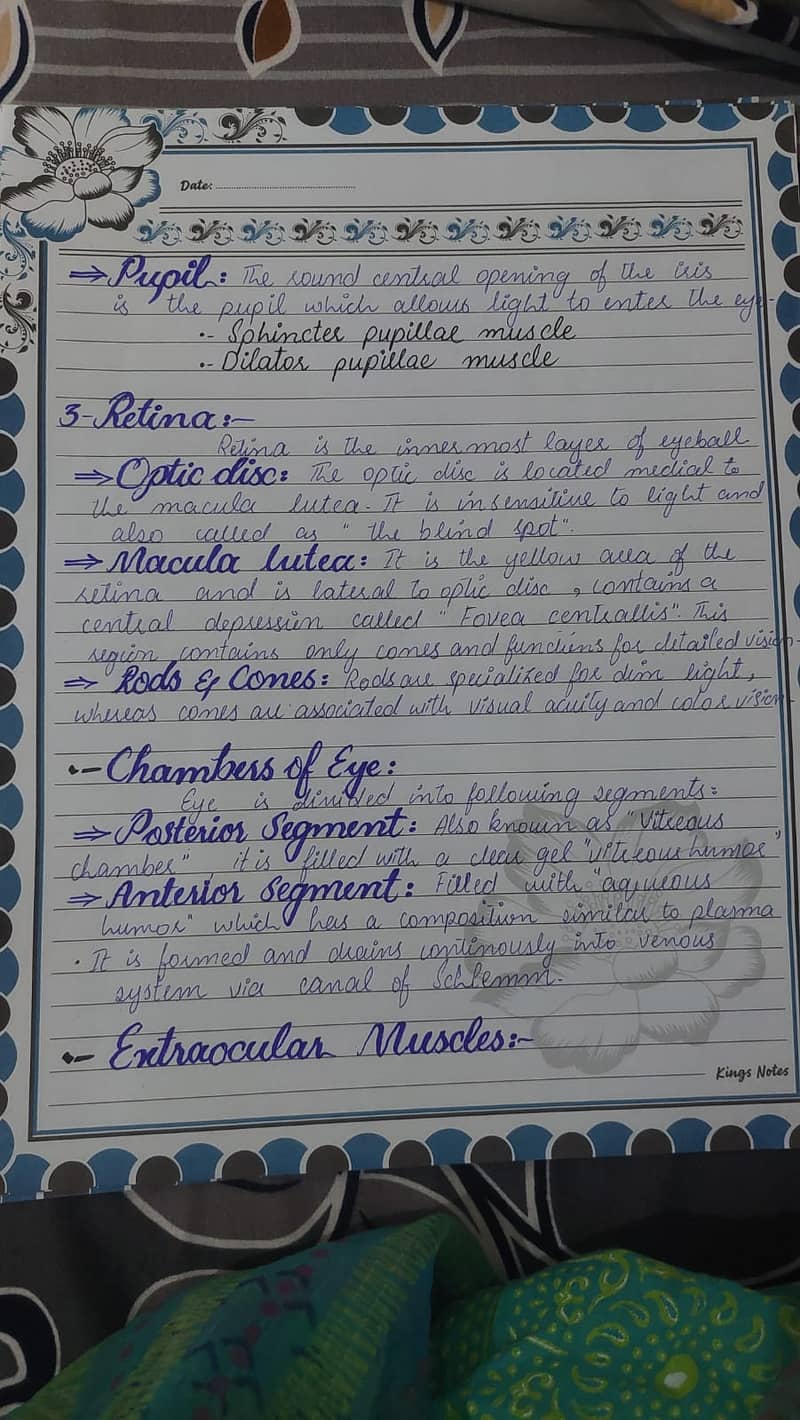 Date:
⇒ Pupil: The round central opening of the iris
is the pupil which allows light to enter the eye.
•- Sphincter pupillae muscle
•- Dilator pupillae muscle
3- Retina:-
Retina is the innermost layer of eyeball
⇒ Optic disc: The optic disc is located medial to
the macula lutea. It is insensitive to light and
also called as "the blind spot".
⇒ Macula lutea: It is the yellow area of the
retina and is lateral to optic disc, contains a
central depression called "Fovea centrallis". This
region contains only cones and functions for detailed vision.
⇒ Rods & Cones: Rods are specialized for dim light,
whereas cones are associated with visual acuity and color vision.
•- Chambers of Eye:
Eye is divided into following segments:
⇒ Posterior Segment: Also known as "Vitreous
chamber", it is filled with a clear gel "vitreous humor"
⇒ Anterior Segment: Filled with "aqueous
humor" which has a composition similar to plasma
• It is formed and drains continously into venous
system via canal of Schlemm.
•- Extraocular Muscles:-
Kings Notes